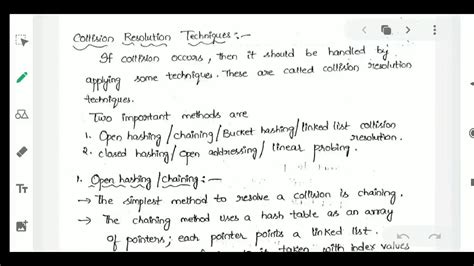 Collision Resolution Techniques:-
If collision occurs, then it should be handled by
applying some techniques. These are called collision resolution
techniques.
Two important methods are
1. Open hashing/chaining/Bucket hashing/linked list collision
resolution.
2. closed hashing/open addressing/linear probing.
1. Open hashing/chaining:-
→ The simplest method to resolve a collision is chaining.
→ The chaining method uses a hash table as an array
of pointers; each pointer points a linked list.
is taken with index values
Tt